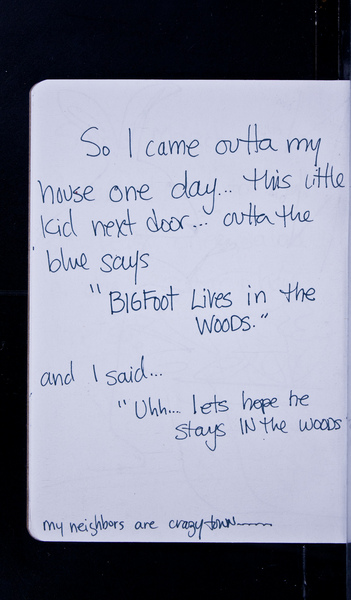 So I came outta my
house one day... this little
kid next door... outta the
blue says
"BIGFOOT Lives in the
WOODS."
and I said...
"Uhh... lets hope he
stays IN the WOODS"
my neighbors are crazytown